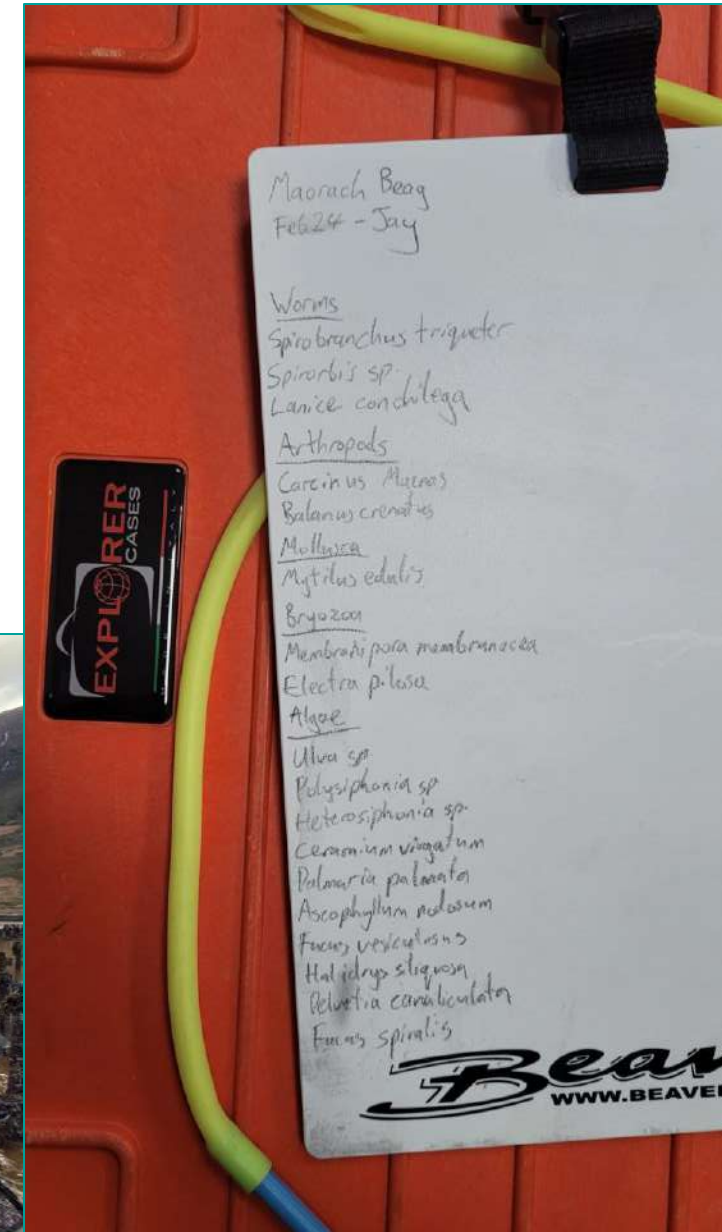 Maorach Beag
Feb 24 - Jay
Worms
Spirobranchus triqueter
Spirorbis sp.
Lanice conchilega
Arthropods
Carcinus Maenas
Balanus crenatus
Mollusca
Mytilus edulis
Bryozoa
Membranipora membranacea
Electra pilosa
Algae
Ulva sp
Polysiphonia sp
Heterosiphonia sp.
Ceramium virgatum
Palmaria palmata
Ascophyllum nodosum
Fucus vesiculosus
Halidrys siliquosa
Pelvetia canaliculata
Fucus spiralis
Beav
WWW.BEAVE
EXPLORER
CASES